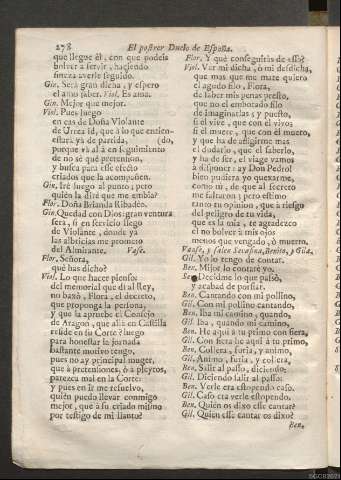 278 El postrer Duelo de España.
que llegue él, con que podeis
bolver a servir, haciendo
fineza averle seguido.
Gin. Será gran dicha, y espero
el amo saber. Viol. Es ama.
Gin. Mejor que mejor.
Viol. Pues luego
en cas de Doña Violante
de Urrea id, que à lo que entien-
estará yà de partida, (do,
porque và al à en seguimiento
de no sé qué pretension,
y busca para esse efecto
criados que la acompañen.
Gin. Iré luego al punto; pero
quièn la diré que me embia?
Flor. Doña Brianda Ribadeo.
Gin. Quedad con Dios: gran ventura
será, si en servicio llego
de Violante, donde yà
las albricias me prometo
del Almirante. Vase.
Flor. Señora,
què has dicho?
Viol. Lo que hacer pienso:
del memorial que di al Rey,
no baxò, Flora, el decreto,
que proponga la persona,
y que la apruebe el Consejo
de Aragon, que allà en Castilla
reside en su Corte? luego
para honestar la jornada
bastante motivo tengo,
pues no ay principal muger,
que à pretensiones, ò à pleytos,
parezca mal en la Corte:
y pues en ir me resuelvo,
quièn puedo llevar conmigo
mejor, que à su criado mismo
por testigo de mi llanto?
Flor. Y què conseguiràs de esso?
Viol. Ver mi dicha, ò mi desdicha,
que mas que me mate quiero
el agudo filo, Flora,
de saber mis penas presto,
que no el embotado filo
de imaginarlas; y puesto,
si èl vive, que con èl vivo,
si èl muere, que con èl muero,
y que ha de afligirme mas
el dudarlo, que el saberlo,
y ha de ser, el viage vamos
à disponer: ay Don Pedro!
bien pudiera yo quexarme,
como tù, de que al secreto
me faltaron; pero estimo
tanto tu opinion, que à riesgo
del peligro de tu vida,
que es la mia, te agradezco
el no bolver à mis ojos
menos que vengado, ò muerto.
Vanse, y salen Serafina, Benito, y Gila.
Gil. Yo lo tengo de contar.
Ben. Mijor lo contarè yo.
Ser. Decidme lo que passò,
y acabad de porfiar.
Ben. Cantando con mi pollino,
Gil. Con mi pollino cantando,
Ben. Iba mi camino, quando,
Gil. Iba, quando mi camino,
Ben. He aquì à tu primo con fiera,
Gil. Con fiera he aquì à tu primo,
Ben. Collera, furia, y animo,
Gil. Animo, furia, y collera,
Ben. Salir al passo, diciendo:
Gil. Diciendo salir al passo:
Ben. Verle era estopendo caso.
Gil. Caso era verle estopendo.
Ben. Quièn os dixo esse cantar?
Gil. Quièn esse cantar os dixo?
Ben.